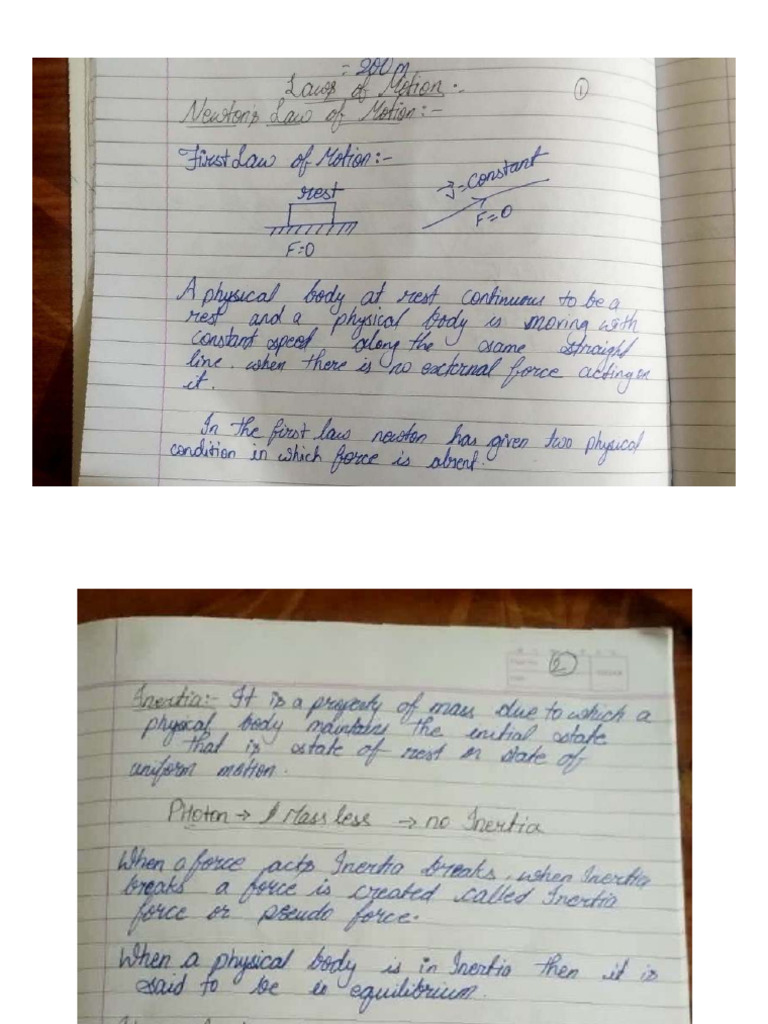 = 200 m
Laws of Motion :-
①
Newton's Law of Motion:-
First Law of Motion:-
rest
F=0
v⃗ = constant
F=0
A physical body at rest continuous to be a
rest and a physical body is moving with
constant speed along the same straight
line. when there is no external force acting on
it.
In the first law newton has given two physical
condition in which force is absent.
②
Inertia:- It is a property of mass due to which a
physical body maintains the initial state
that is state of rest or state of
uniform motion.
PHoton → Mass less → no Inertia
When a force acts Inertia breaks, when Inertia
breaks a force is created called Inertia
force or pseudo force.
When a physical body is in Inertia then it is
said to be is equilibrium.